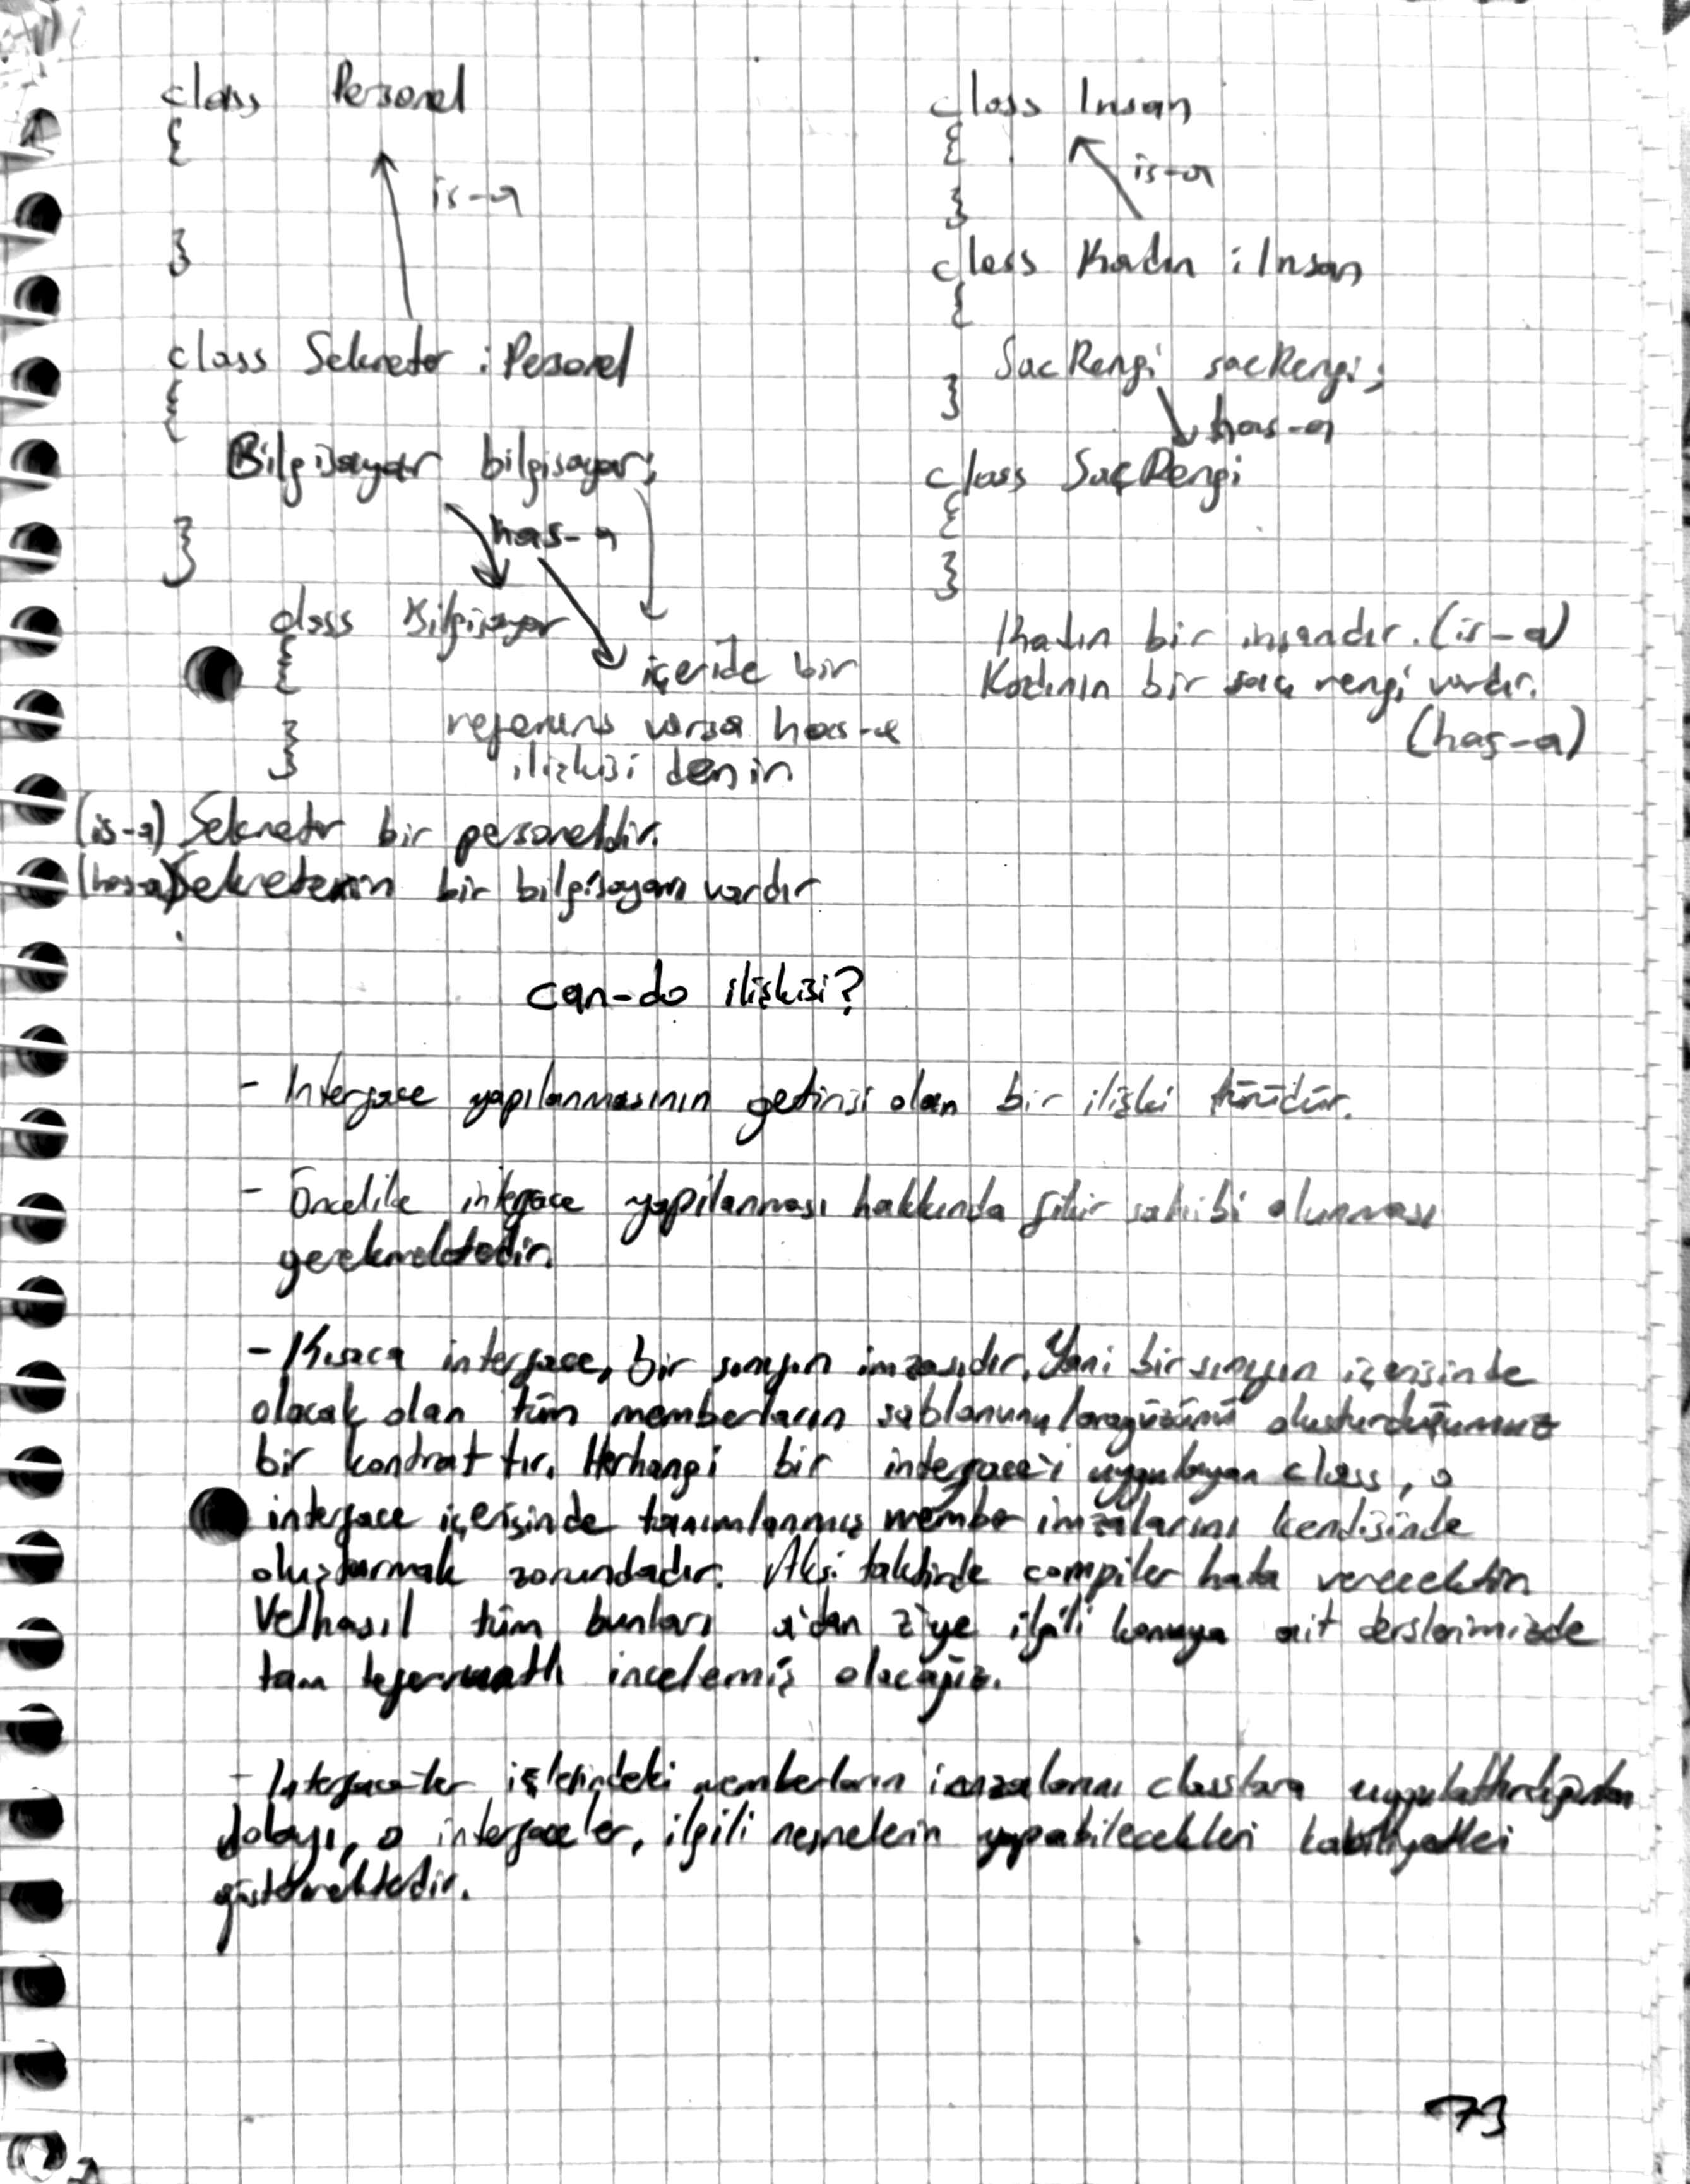 class Personel
{
is-a
}
class Sekreter : Personel
{
Bilgisayar bilgisayar;
has-a
}
class Bilgisayar
{
içeride bir
referans varsa has-a
}
ilişkisi denir
(is-a) Sekreter bir personeldir.
(has-a) Sekreterin bir bilgisayarı vardır
class Insan
{
is-a
}
class Kadın : Insan
{
SacRengi sacRengi;
}
has-a
class SaçRengi
{
}
Kadın bir insandır. (is-a)
Kadının bir saç rengi vardır.
(has-a)
can-do ilişkisi?
- Interface yapılanmasının getirisi olan bir ilişki türüdür.
- Öncelikle interface yapılanması hakkında fikir sahibi olunması
gerekmektedir.
- Kısaca interface, bir sınıfın imzasıdır. Yani bir sınıfın içerisinde
olacak olan tüm memberların şablonunu/arayüzünü oluşturduğumuz
bir kontrattır. Herhangi bir interface'i uygulayan class, o
interface içerisinde tanımlanmış member imzalarını kendisinde
oluşturmak zorundadır. Aksi taktirde compiler hata verecektir.
Velhasıl tüm bunları a'dan z'ye ilgili konuya ait derslerimizde
tam teferruatlı incelemiş olacağız.
- Interface'ler içlerindeki memberların imzalarını classlara uygulattırdığından
dolayı, o interfaceler, ilgili nesnelerin yapabilecekleri kabiliyetleri
göstermektedir.
73